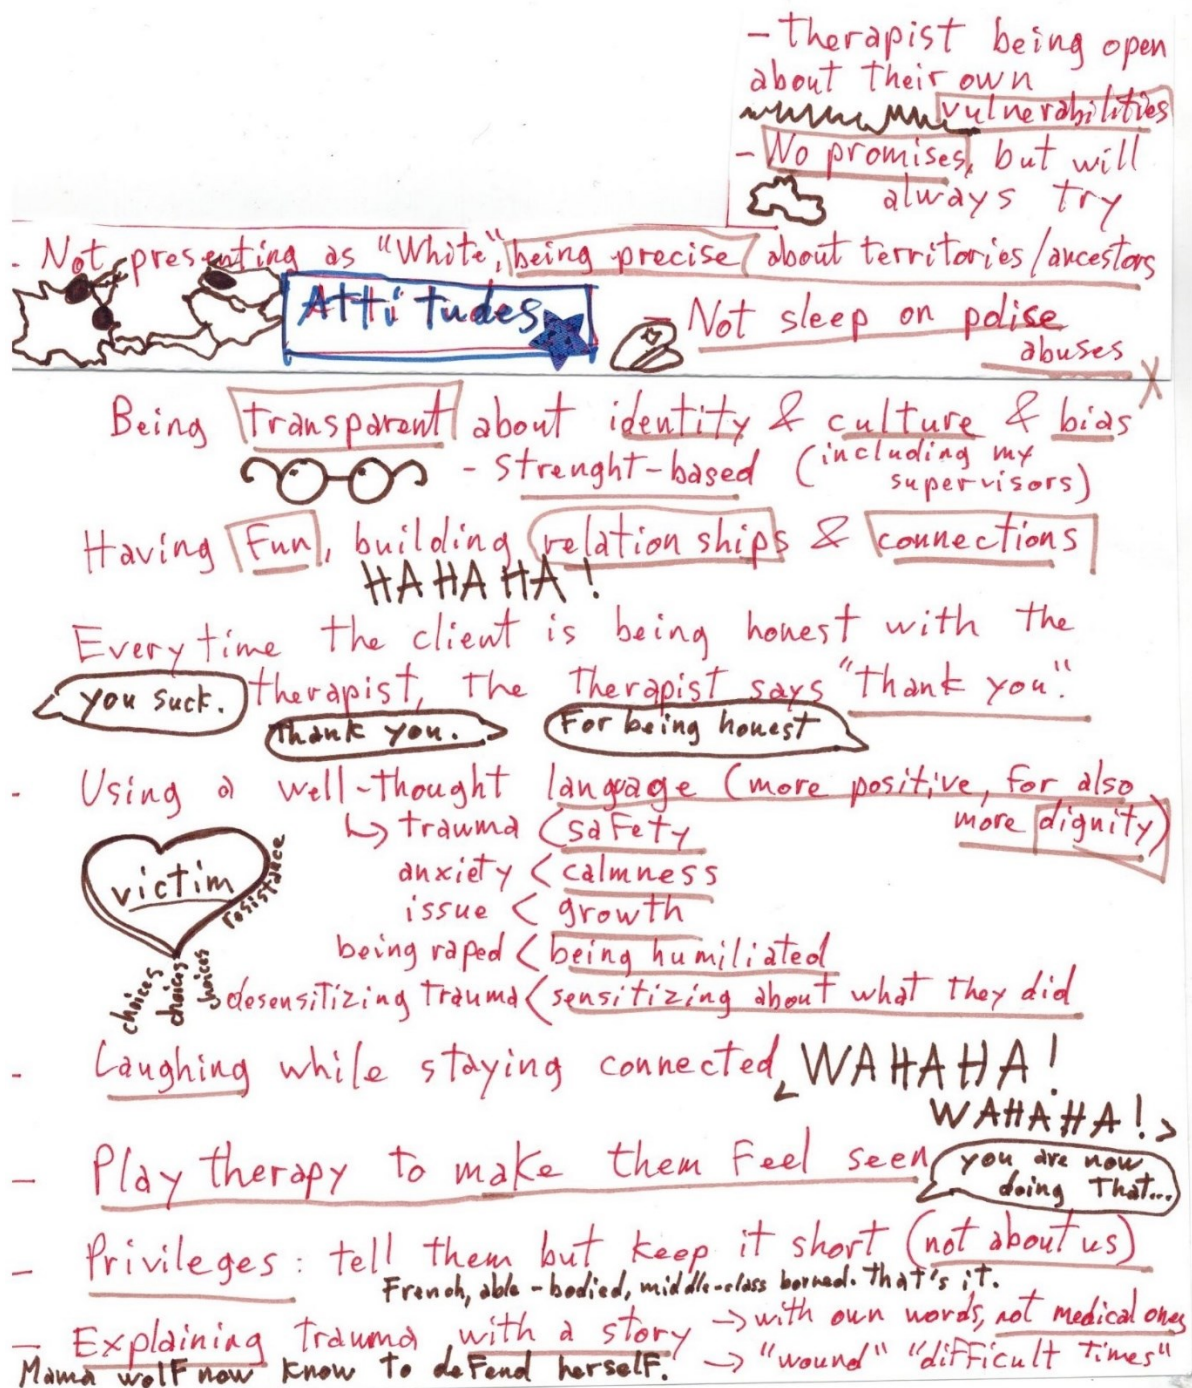 - Therapist being open
about their own
vulnerabilities
- No promises, but will
always try
- Not presenting as "White", being precise about territories/ancestors
Attitudes
= Not sleep on polise
abuses
X
Being transparent about identity & culture & bias
- strenght-based (including my
supervisors)
Having Fun, building relationships & connections
HAHAHA!
Every time the client is being honest with the
you suck. therapist, the therapist says "thank you".
Thank you. For being honest
- Using a well-thought language (more positive, for also
more dignity)
↳ trauma < safety
anxiety < calmness
issue < growth
being raped < being humiliated
desensitizing trauma < sensitizing about what they did
victim
resistance
choices
choices
choices
- Laughing while staying connected, WAHAHA!
WAHAHA!
- Play therapy to make them Feel seen
you are now
doing That...
- Privileges: tell them but keep it short (not about us)
French, able-bodied, middle-class borned. That's it.
- Explaining trauma with a story → with own words, not medical ones
Mama wolf now know to defend herself. → "wound" "difficult times"